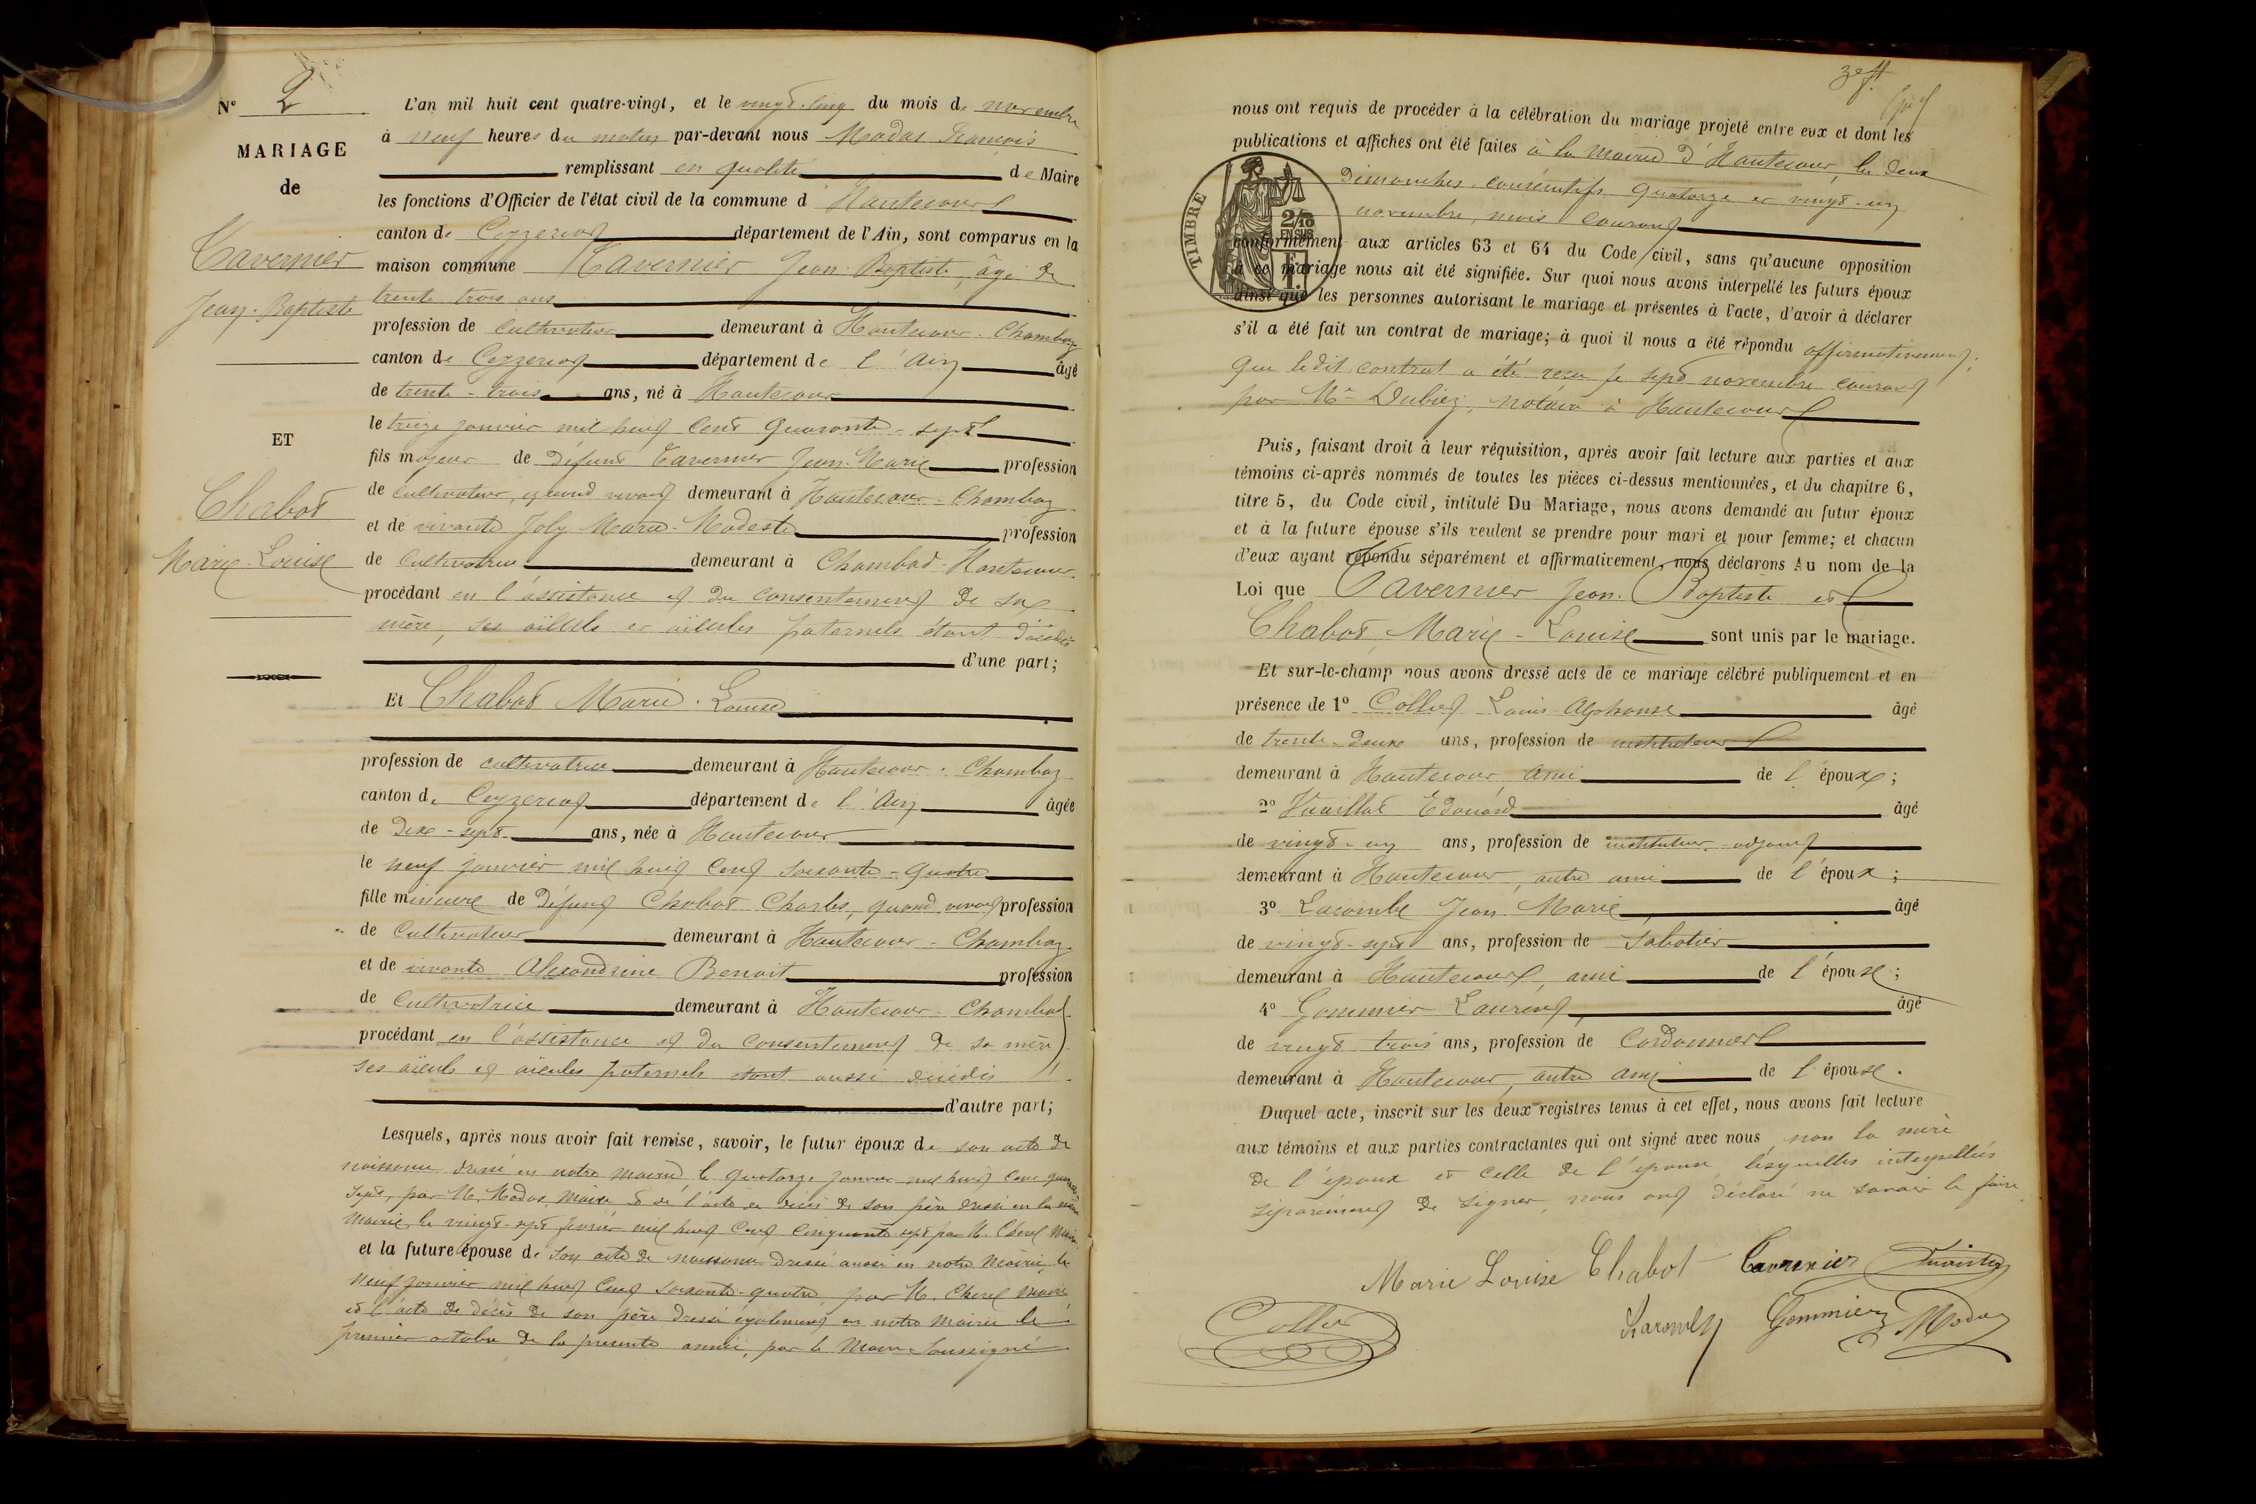 N° 2
MARIAGE
de
Tavernier
Jean-Baptiste
ET
Chabot
Marie-Louise
L'an mil huit cent quatre-vingt, et le vingt-cinq du mois de novembre
à neuf heures du matin par-devant nous Modas François
remplissant en qualité de Maire
les fonctions d'Officier de l'état civil de la commune d Hautecour
canton de Ceyzeriat département de l'Ain, sont comparus en la
maison commune Tavernier Jean-Baptiste, âgé de
trente trois ans
profession de cultivateur demeurant à Hautecour-Chambod
canton de Ceyzeriat département de l'Ain âgé
de trente-trois ans, né à Hautecour
le treize janvier mil huit cent quarante-sept
fils majeur de défunt Tavernier Jean-Marie profession
de cultivateur, quand vivait demeurant à Hautecour-Chambod
et de vivante Joly Marie-Modeste profession
de cultivatrice demeurant à Chambod-Hautecour
procédant en l'assistance et du consentement de sa
mère, ses aïeuls et aïeules paternels étant décédés
d'une part;
Et Chabot Marie-Louise
profession de cultivatrice demeurant à Hautecour-Chambod
canton de Ceyzeriat département de l'Ain âgée
de dix-sept ans, née à Hautecour
le neuf janvier mil huit cent soixante-quatre
fille mineure de défunt Chabot Charles, quand vivait profession
de cultivateur demeurant à Hautecour-Chambod
et de vivante Alexandrine Benoit profession
de cultivatrice demeurant à Hautecour-Chambod
procédant en l'assistance et du consentement de sa mère
ses aïeuls et aïeules paternels étant aussi décédés
d'autre part;
Lesquels, après nous avoir fait remise, savoir, le futur époux de son acte de
naissance dressé en notre mairie le quatorze janvier mil huit cent quarante
sept, par M. Modas, Maire et de l'acte de décès de son père dressé en la même
mairie le vingt-sept février mil huit cent cinquante sept par M. Cherel Maire
et la future épouse de son acte de naissance dressé aussi en notre Mairie, le
neuf janvier mil huit cent soixante-quatre, par M. Cherel Maire
et l'acte de décès de son père dressé également en notre Mairie le
premier octobre de la présente année, par le Maire soussigné
nous ont requis de procéder à la célébration du mariage projeté entre eux et dont les
publications et affiches ont été faites à la Mairie d'Hautecour, les deux
Dimanches consécutifs quatorze et vingt-un
novembre, mois courant
TIMBRE
2/10
EN SUS
1 F.
conformément aux articles 63 et 64 du Code civil, sans qu'aucune opposition
à ce mariage nous ait été signifiée. Sur quoi nous avons interpellé les futurs époux
ainsi que les personnes autorisant le mariage et présentes à l'acte, d'avoir à déclarer
s'il a été fait un contrat de mariage; à quoi il nous a été répondu affirmativement;
que ledit contrat a été reçu le sept novembre courant
par Me Dubiez, notaire à Hautecour
Puis, faisant droit à leur réquisition, après avoir fait lecture aux parties et aux
témoins ci-après nommés de toutes les pièces ci-dessus mentionnées, et du chapitre 6,
titre 5, du Code civil, intitulé Du Mariage, nous avons demandé au futur époux
et à la future épouse s'ils veulent se prendre pour mari et pour femme; et chacun
d'eux ayant répondu séparément et affirmativement, nous déclarons Au nom de la
Loi que Tavernier Jean-Baptiste et
Chabot, Marie-Louise sont unis par le mariage.
Et sur-le-champ nous avons dressé acte de ce mariage célébré publiquement et en
présence de 1° Collet Louis-Alphonse âgé
de trente-deux ans, profession de instituteur
demeurant à Hautecour, ami de l'époux;
2° Vuaillat Edouard âgé
de vingt-un ans, profession de instituteur adjoint
demeurant à Hautecour, autre ami de l'époux;
3° Lacombe Jean-Marie âgé
de vingt-sept ans, profession de sabotier
demeurant à Hautecour, ami de l'épouse;
4° Gommier Laurent, âgé
de vingt trois ans, profession de cordonnier
demeurant à Hautecour, autre ami de l'épouse.
Duquel acte, inscrit sur les deux registres tenus à cet effet, nous avons fait lecture
aux témoins et aux parties contractantes qui ont signé avec nous non la mère
de l'époux et celle de l'épouse lesquelles interpellées
séparément de signer, nous ont déclaré ne savoir le faire
Marie Louise Chabot Tavernier
Collet Gommier Modas